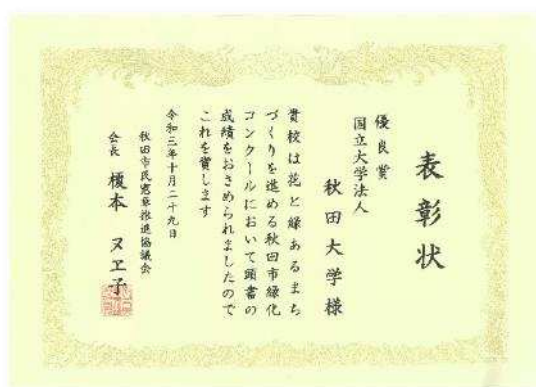 表彰状
優良賞
国立大学法人
秋田大学様
貴校は花と緑あるまち
づくりを進める秋田市緑化
コンクールにおいて頭書の
成績をおさめられましたので
これを賞します
令和三年十月二十九日
秋田市民憲章推進協議会
会長 榎本 ヌヱ子